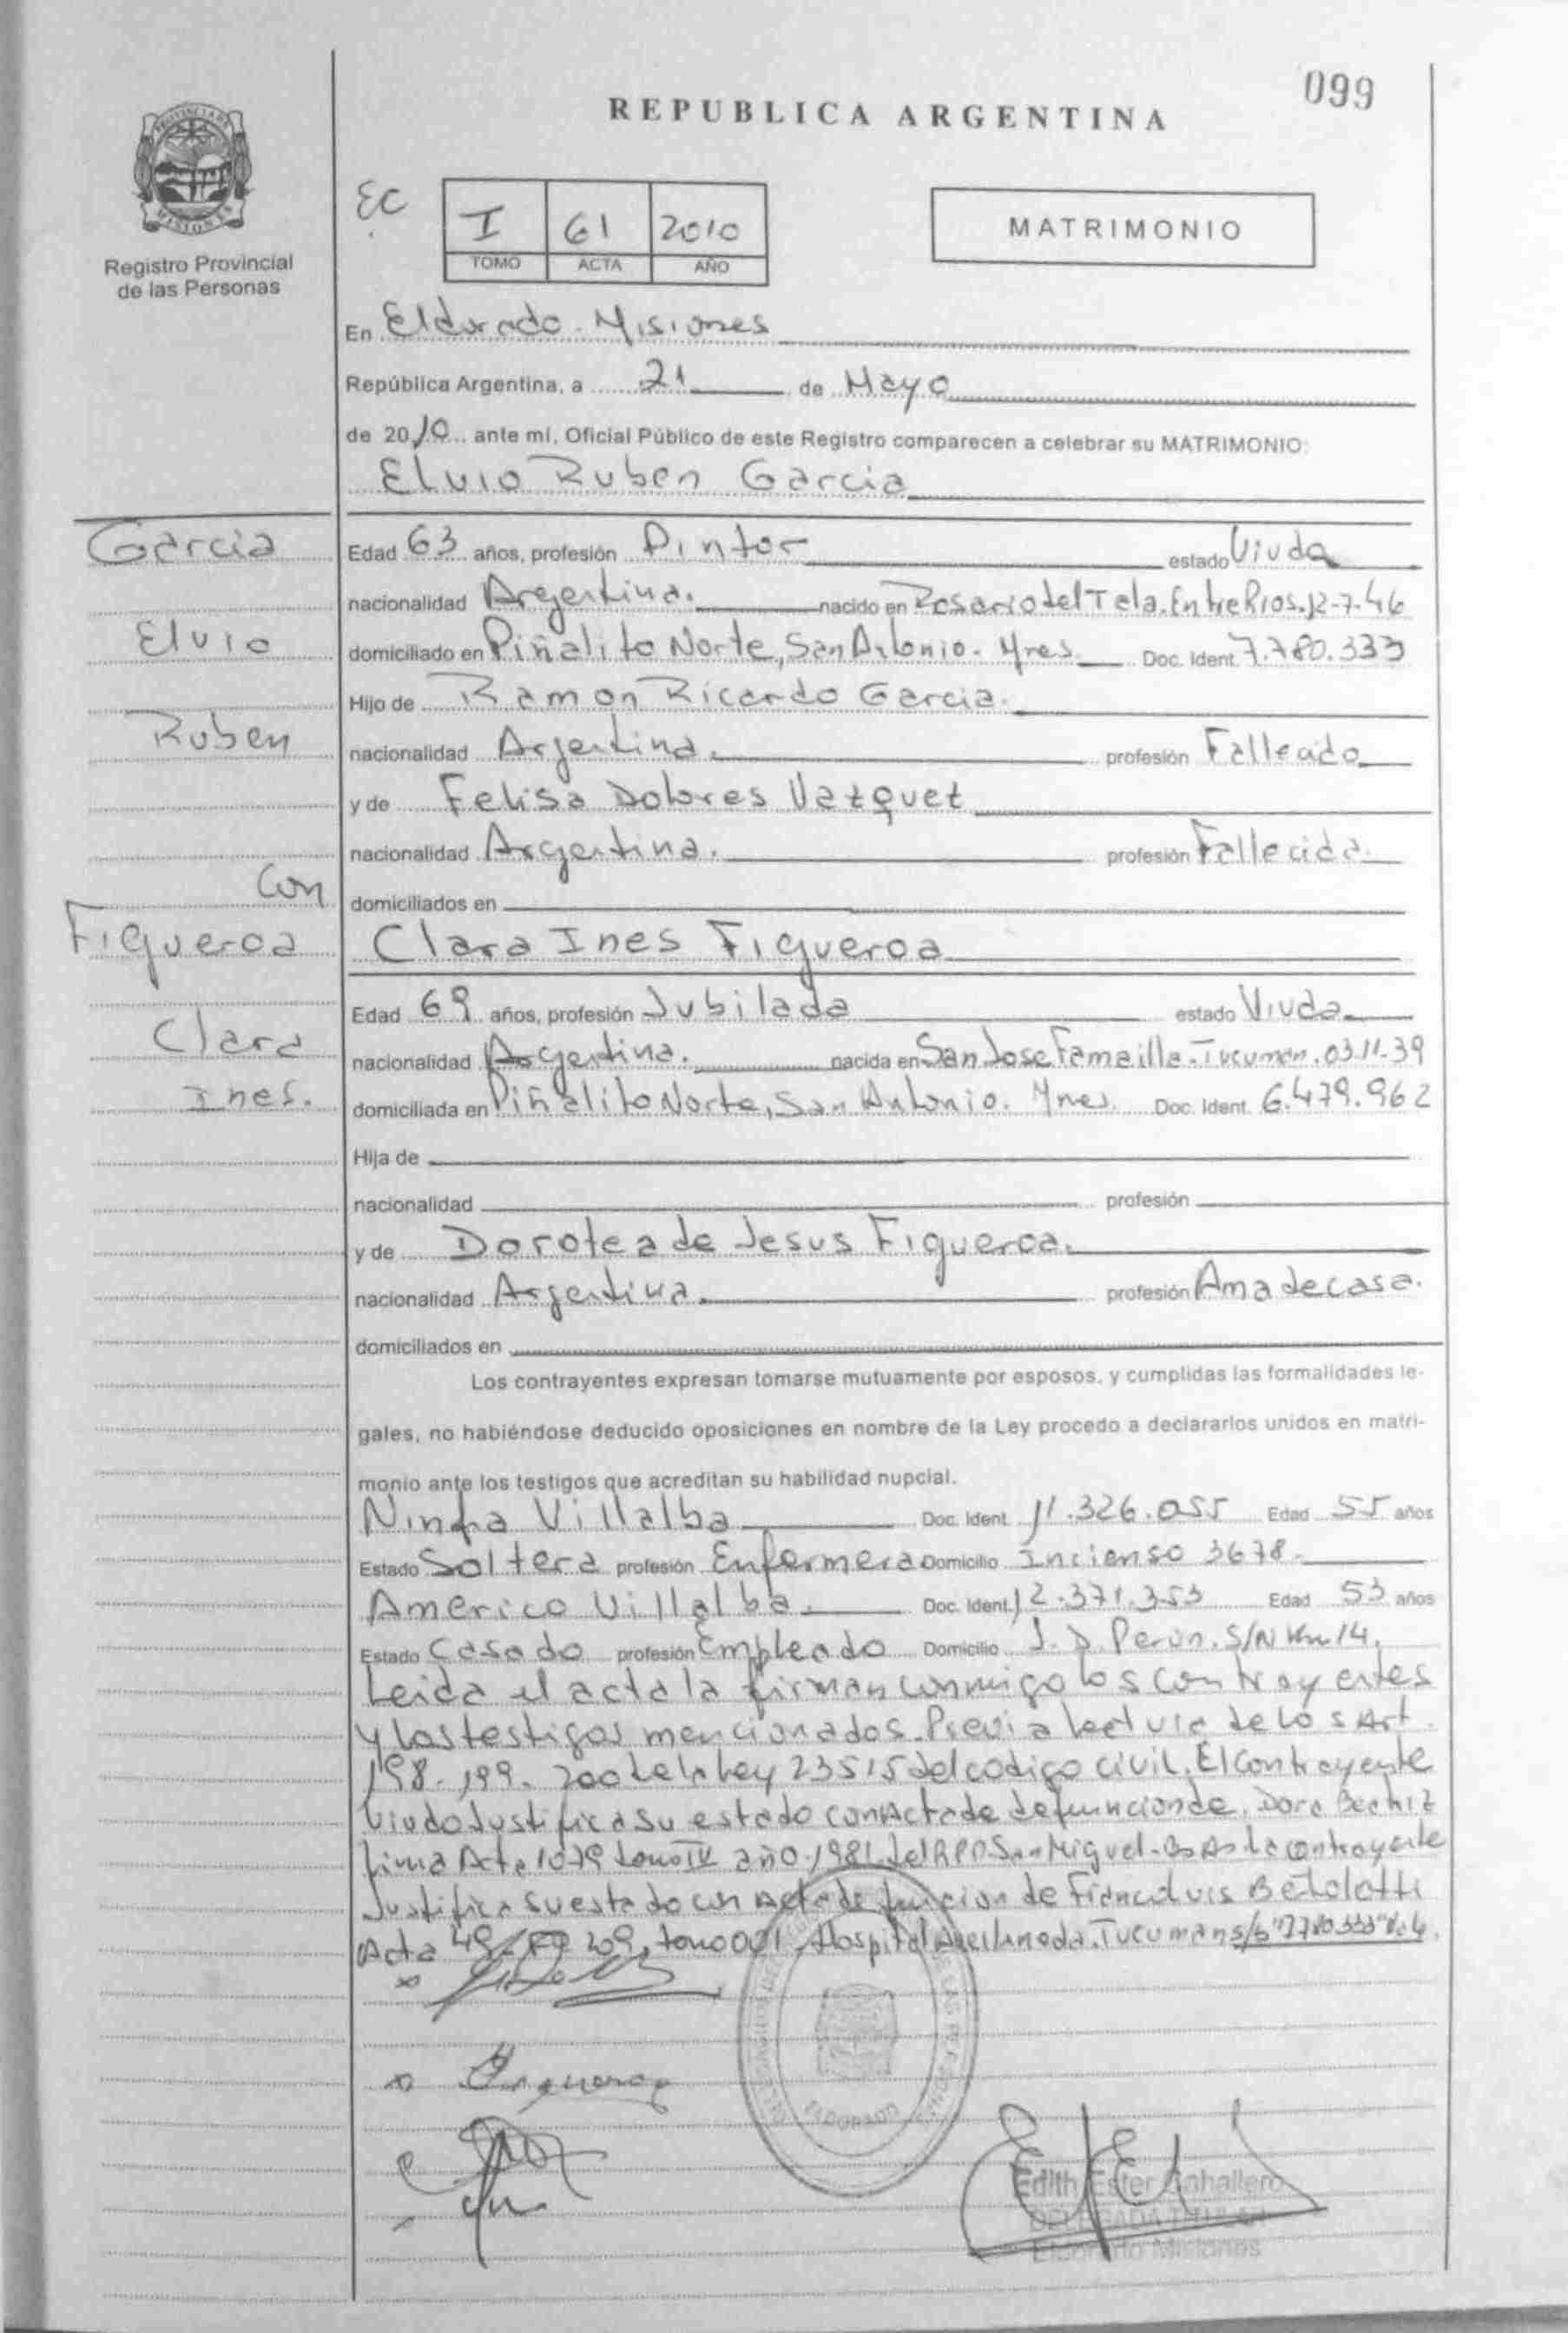 099
REPUBLICA ARGENTINA
PROVINCIA DE
MISIONES
Registro Provincial
de las Personas
EC
I 61 2010
TOMO ACTA AÑO
MATRIMONIO
En Eldorado - Misiones
República Argentina, a 21 de Mayo
de 2010 ante mí, Oficial Público de este Registro comparecen a celebrar su MATRIMONIO:
Elvio Ruben Garcia
Garcia
Elvio
Ruben
Con
Figueroa
Clara
Ines.
Edad 63 años, profesión Pintor estado Viuda
nacionalidad Argentina. nacido en Rosario del Tala. Entre Rios. 12-7-46
domiciliado en Piñalito Norte, San Antonio. Mnes. Doc. Ident. 7.780.333
Hijo de Ramon Ricardo Garcia.
nacionalidad Argentina. profesión Fallecido
y de Felisa Dolores Vazquez
nacionalidad Argentina. profesión Fallecida
domiciliados en
Clara Ines Figueroa
Edad 69 años, profesión Jubilada estado Viuda
nacionalidad Argentina. nacida en San Jose Famailla - Tucuman. 03.11.39
domiciliada en Piñalito Norte, San Antonio. Mnes. Doc. Ident. 6.479.962
Hija de
nacionalidad profesión
y de Dorotea de Jesus Figueroa.
nacionalidad Argentina. profesión Ama de casa.
domiciliados en
Los contrayentes expresan tomarse mutuamente por esposos, y cumplidas las formalidades le-
gales, no habiéndose deducido oposiciones en nombre de la Ley procedo a declararlos unidos en matri-
monio ante los testigos que acreditan su habilidad nupcial.
Ninfa Villalba Doc. Ident. 11.326.055 Edad 55 años
Estado Soltera profesión Enfermera Domicilio Incienso 3678.
Americo Villalba. Doc. Ident. 12.371.353 Edad 53 años
Estado Casado profesión Empleado Domicilio J. D. Peron. S/N Km 14.
Leida el acta la firman conmigo los contrayentes
y los testigos mencionados. Previa lectura de los Art.
198. 199. 200 de la Ley 23515 del codigo civil. El Contrayente
Viudo Justifica su estado con Acta de defuncion de. Dora Beatriz
Lima Acta 1079 tomo IV año 1981 del RPD San Miguel - Bs As. La contrayente
Justifica su estado con Acta defuncion de Betolotti
Acta 49 209, tomo 001, Hospital Avellaneda. Tucuman s/b "7780.333" Vale.
Figueroa
ELDORADO
Edith Ester Caballero
DELEGADA TITULAR
Eldorado Misiones